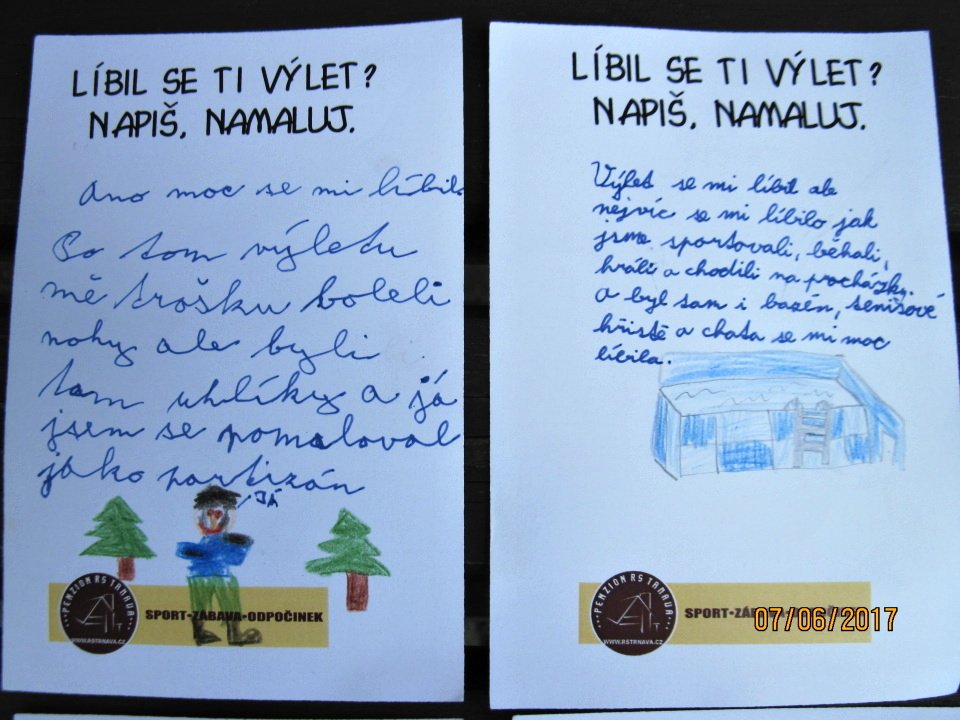 LÍBIL SE TI VÝLET?
NAPIŠ, NAMALUJ.
Ano moc se mi líbil
Po tom výletu
mě trošku boleli
nohy ale byli
tam uhlíky a já
jsem se pomaloval
jako partizán
JÁ
PENZION RS TRNAVA
WWW.RSTRNAVA.CZ
SPORT•ZÁBAVA•ODPOČINEK
LÍBIL SE TI VÝLET?
NAPIŠ, NAMALUJ.
Výlet se mi líbil ale
nejvíc se mi líbilo jak
jsme sportovali, běhali,
hráli a chodili na procházky.
a byl tam i bazén, tenisové
hřistě a chata se mi moc
líbila.
PENZION RS TRNAVA
WWW.RSTRNAVA.CZ
SPORT•ZÁBAVA•ODPOČINEK
07/06/2017